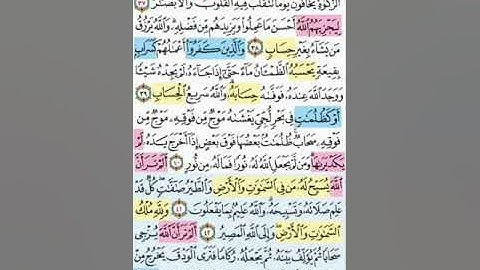 ٱلزَّكَوٰةِ يَخَافُونَ يَوْمًا تَتَقَلَّبُ فِيهِ ٱلْقُلُوبُ وَٱلْأَبْصَٰرُ ٣٧
لِيَجْزِيَهُمُ ٱللَّهُ أَحْسَنَ مَا عَمِلُوا۟ وَيَزِيدَهُم مِّن فَضْلِهِۦ وَٱللَّهُ يَرْزُقُ
مَن يَشَآءُ بِغَيْرِ حِسَابٍ ٣٨ وَٱلَّذِينَ كَفَرُوٓا۟ أَعْمَٰلُهُمْ كَسَرَابٍۭ
بِقِيعَةٍ يَحْسَبُهُ ٱلظَّمْـَٔانُ مَآءً حَتَّىٰٓ إِذَا جَآءَهُۥ لَمْ يَجِدْهُ شَيْـًٔا
وَوَجَدَ ٱللَّهَ عِندَهُۥ فَوَفَّىٰهُ حِسَابَهُۥ وَٱللَّهُ سَرِيعُ ٱلْحِسَابِ ٣٩
أَوْ كَظُلُمَٰتٍ فِى بَحْرٍ لُّجِّىٍّ يَغْشَىٰهُ مَوْجٌ مِّن فَوْقِهِۦ مَوْجٌ مِّن
فَوْقِهِۦ سَحَابٌ ظُلُمَٰتٌۢ بَعْضُهَا فَوْقَ بَعْضٍ إِذَآ أَخْرَجَ يَدَهُۥ لَمْ
يَكَدْ يَرَىٰهَا وَمَن لَّمْ يَجْعَلِ ٱللَّهُ لَهُۥ نُورًا فَمَا لَهُۥ مِن نُّورٍ ٤٠ أَلَمْ تَرَ أَنَّ
ٱللَّهَ يُسَبِّحُ لَهُۥ مَن فِى ٱلسَّمَٰوَٰتِ وَٱلْأَرْضِ وَٱلطَّيْرُ صَٰٓفَّٰتٍ كُلٌّ قَدْ
عَلِمَ صَلَاتَهُۥ وَتَسْبِيحَهُۥ وَٱللَّهُ عَلِيمٌۢ بِمَا يَفْعَلُونَ ٤١ وَلِلَّهِ مُلْكُ
ٱلسَّمَٰوَٰتِ وَٱلْأَرْضِ وَإِلَى ٱللَّهِ ٱلْمَصِيرُ ٤٢ أَلَمْ تَرَ أَنَّ ٱللَّهَ يُزْجِى
سَحَابًا ثُمَّ يُؤَلِّفُ بَيْنَهُۥ ثُمَّ يَجْعَلُهُۥ رُكَامًا فَتَرَى ٱلْوَدْقَ يَخْرُجُ مِنْ